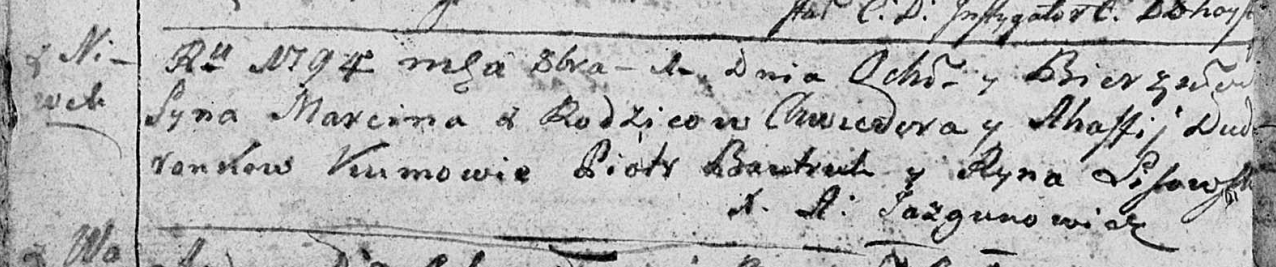 Star C. D. Instygator C.
z Ni-
wek
Ru 1794 mſca 8bra 1 Dnia Ochō y Bierzm
Syna Marcina z Rodzicow Chwiedora y Ahaffij Dud-
ronkow Kumowie Piotr Bautruk y Ryna Lisowſk
X. A. Jazgunowicz
z Wa